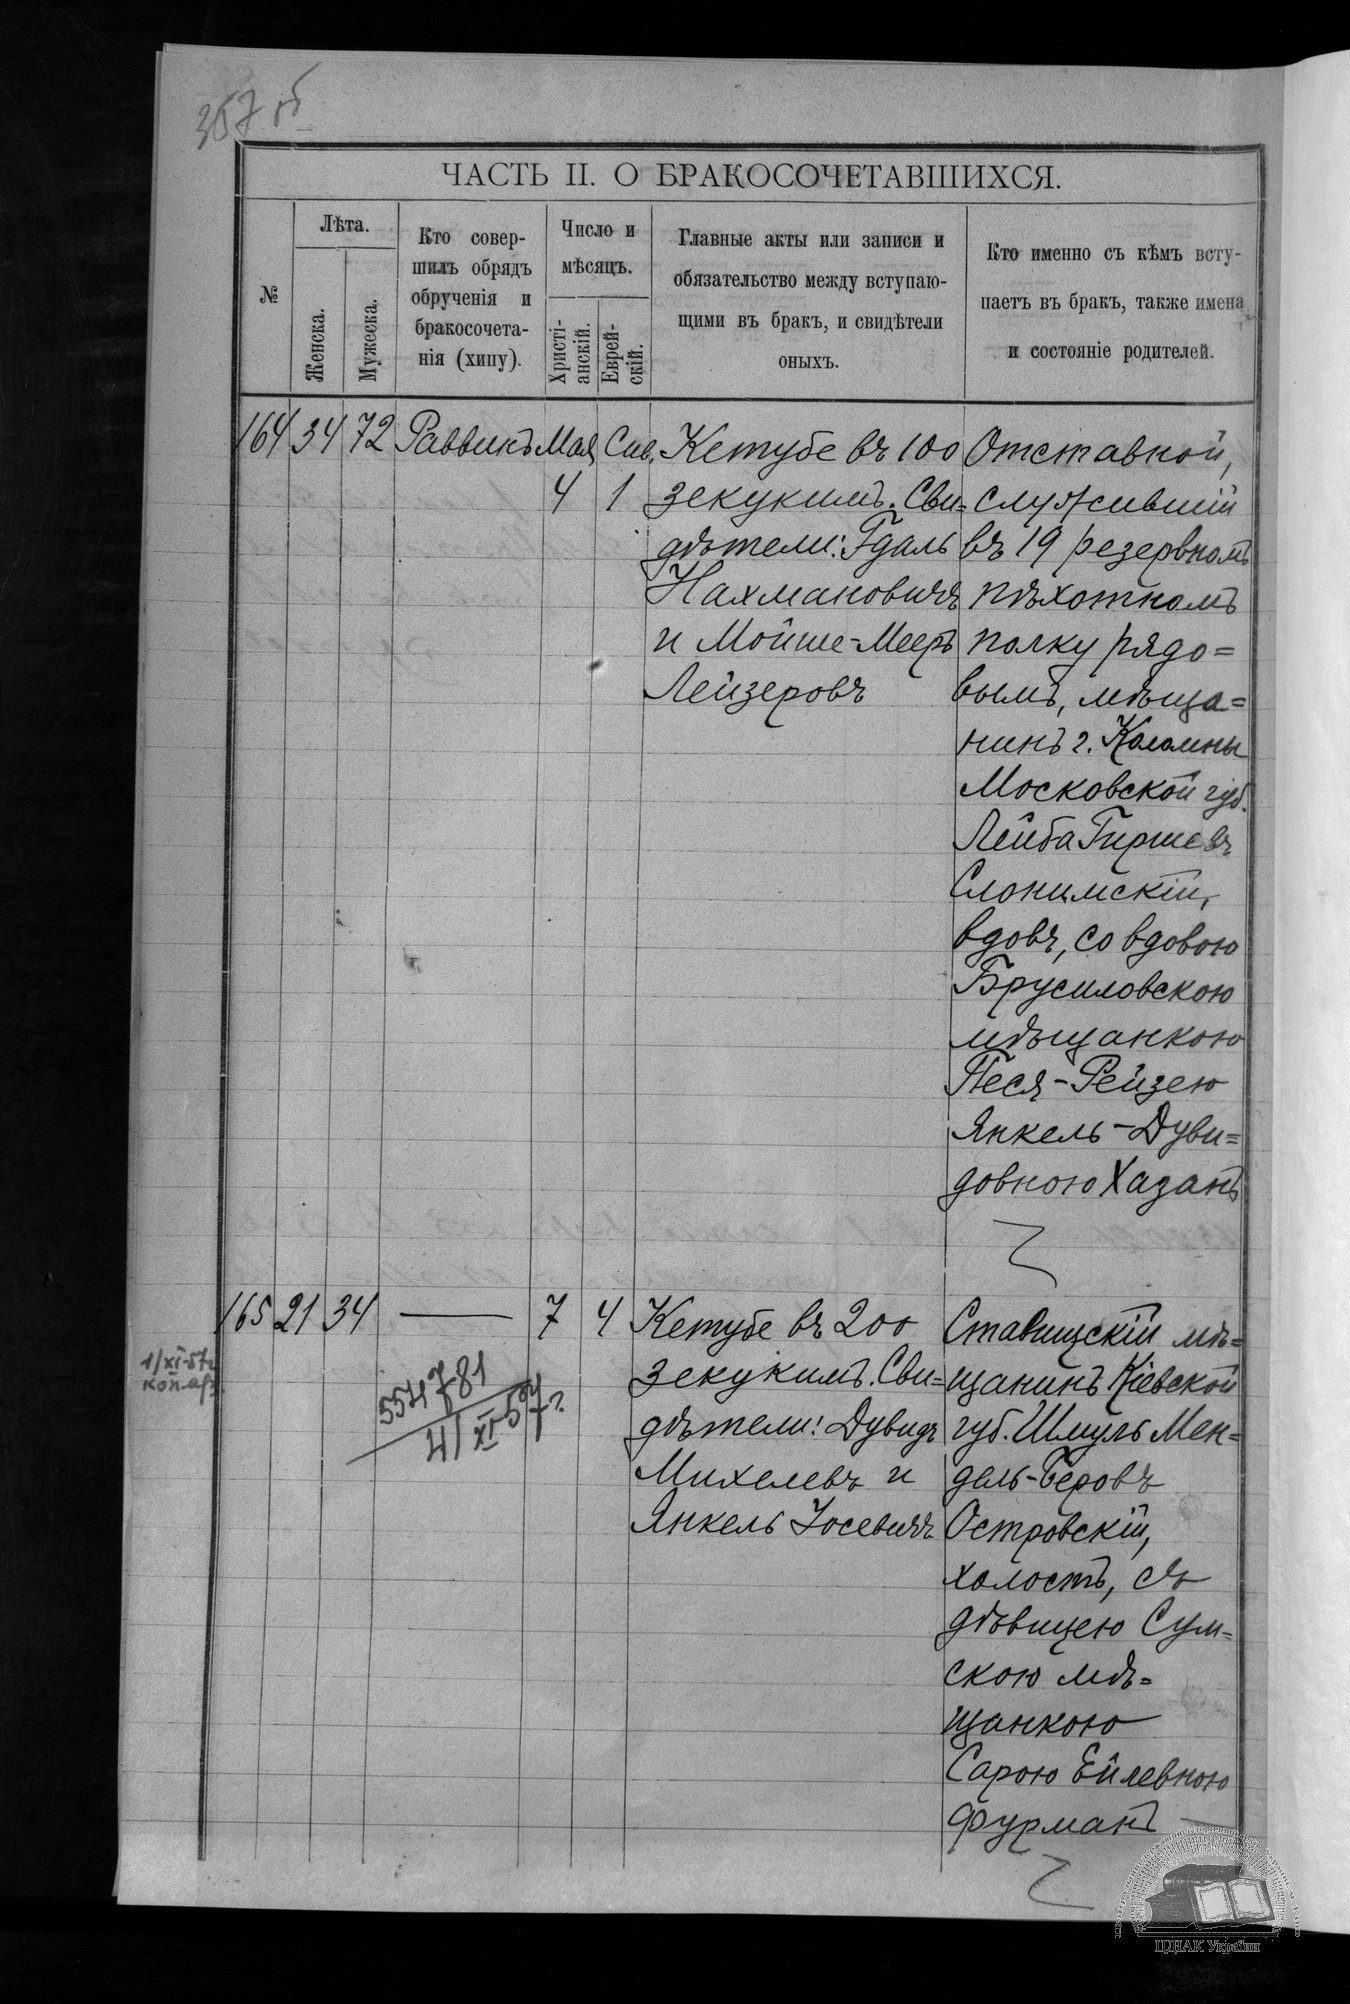 357 об
ЧАСТЬ II. О БРАКОСОЧЕТАВШИХСЯ.
№
Лѣта.
Женска.
Мужеска.
Кто совер-
шилъ обрядъ
обрученія и
бракосочета-
нія (хипу).
Число и
мѣсяцъ.
Христі-
анскій.
Еврей-
скій.
Главные акты или записи и
обязательство между вступаю-
щими въ бракъ, и свидѣтели
оныхъ.
Кто именно съ кѣмъ всту-
паетъ въ бракъ, также имена
и состояніе родителей.
164 34 72 Раввинъ Мая Сив.
4 1
Кетубе въ 100
зекукимъ. Сви=
дѣтели: Гдаль
Нахмановичъ
и Мойше=Меер
Лейзеровъ
Отставной,
служившій
въ 19 резервномъ
пѣхотномъ
полку рядо=
вымъ, мѣща=
нинъ г. Коломны
Московской губ.
Лейба Гиршевъ
Слонимскій,
вдовъ, со вдовою
Брусиловскою
мѣщанкою
Песя-Рейзею
Янкель-Дуви=
довною Хазанъ
165 21 34 — 7 4
Кетубе въ 200
зекукимъ. Сви=
дѣтели: Дувидъ
Михелевъ и
Янкель Іосевичъ
Ставищскій мѣ=
щанинъ Кіевской
губ. Шмуль Мен=
дель-Беровъ
Островскій,
холостъ, съ
дѣвицею Сум=
скою мѣ=
щанкою
Сарою Ейлевною
Фурманъ
1/XI-57г
коп.арх.
554781
4/XI 57г.
ЦДІАК України